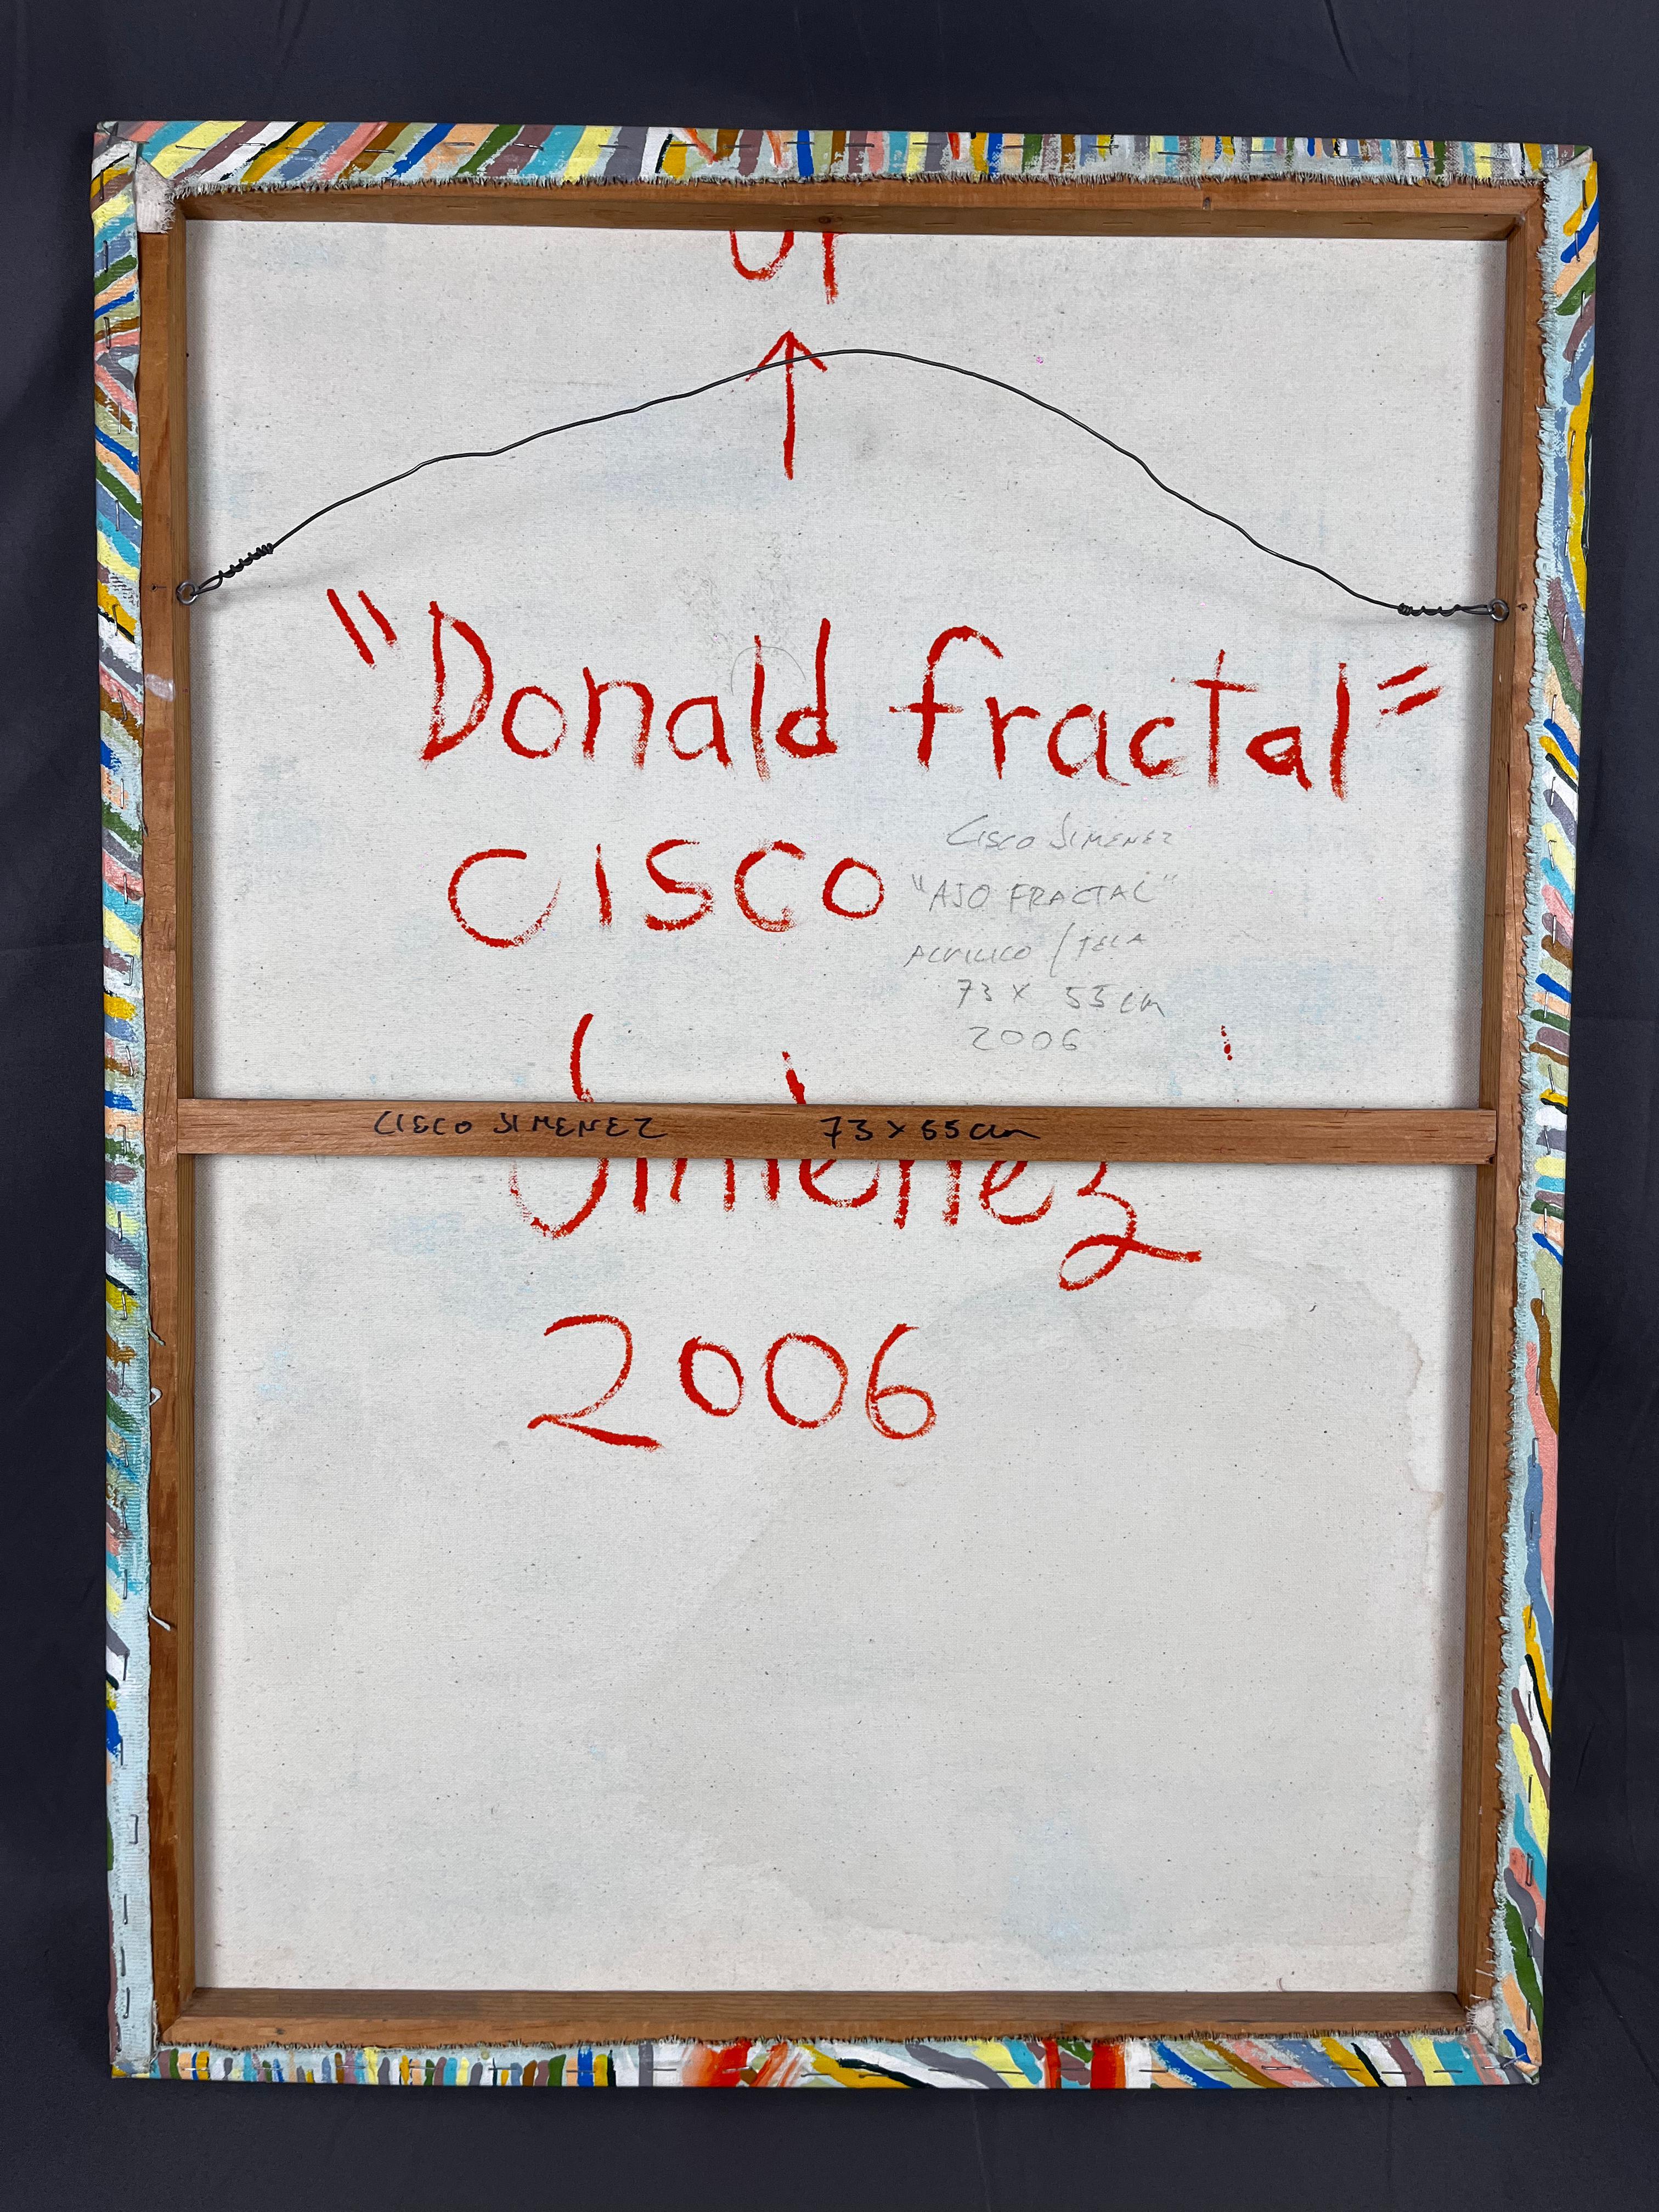 UP
"Donald fractal"
CISCO
CISCO JIMENEZ
"AJO FRACTAL"
ACRILICO / TELA
73 X 55 cm
2006
CISCO JIMENEZ 73 X 55 cm
Jiménez
2006